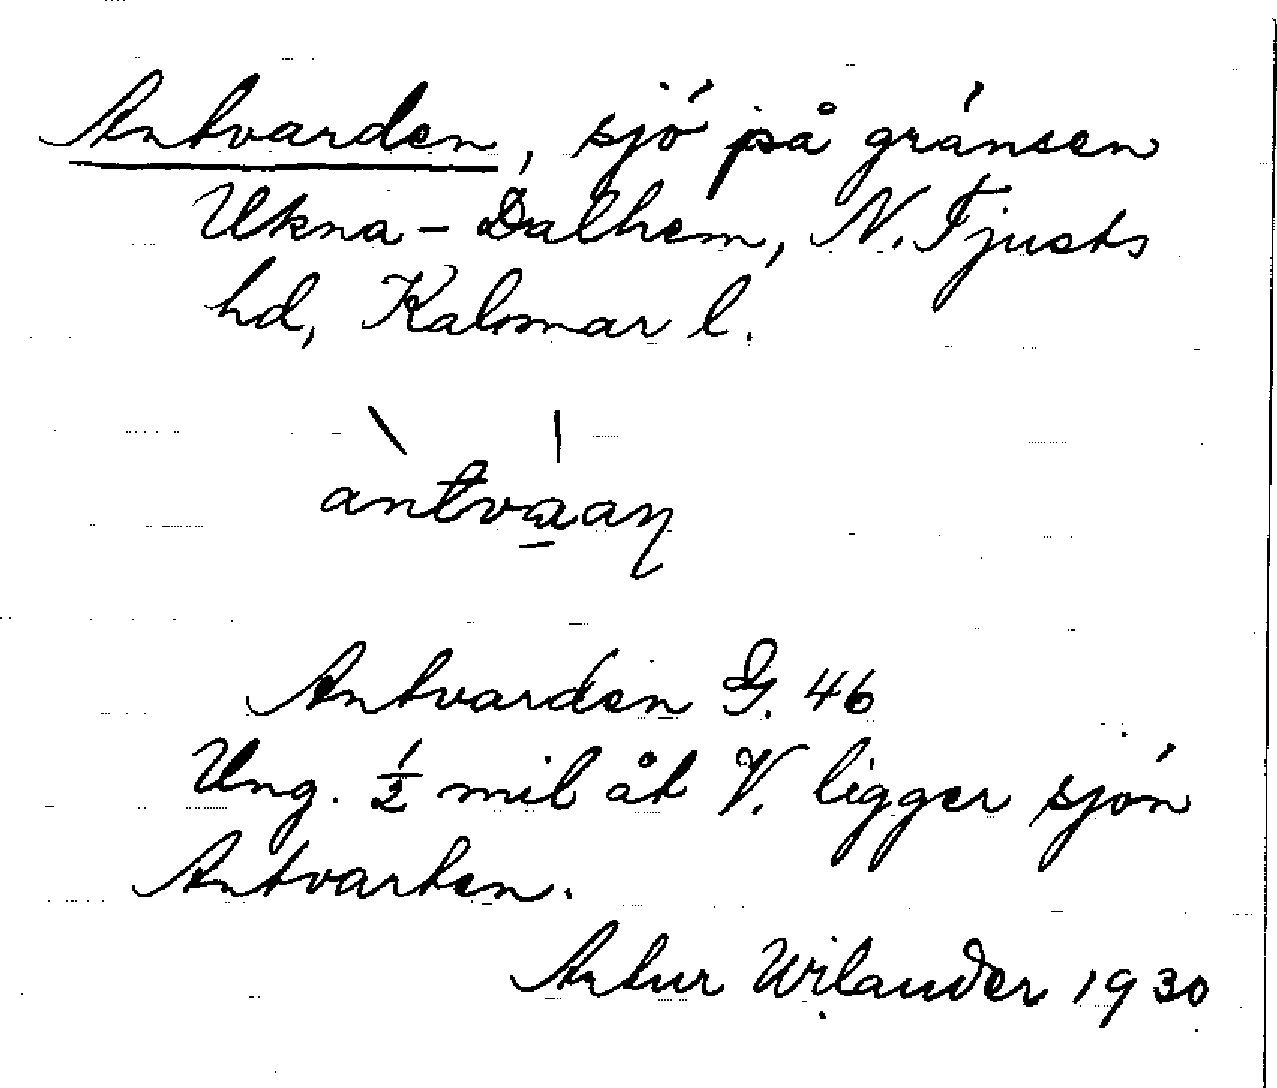 Antvarden, sjö på gränsen
Ukna - Dalhem, N. Tjusts
hd, Kalmar l.
Antvarden G. 46
Ung. ½ mil åt V. ligger sjön
Antvarten.
Artur Wilander 1930